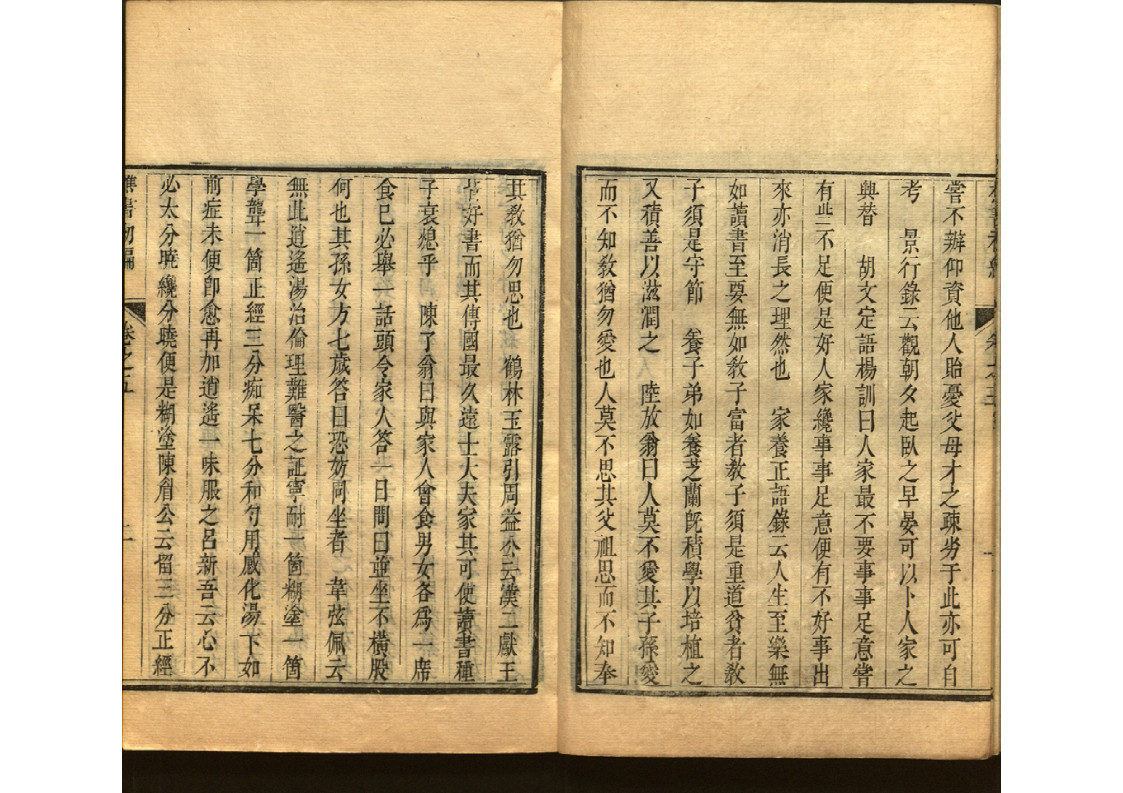 嘗不辦仰資他人貽憂父母才之疎劣于此亦可自
考　景行錄云觀朝夕起臥之早晏可以卜人家之
興替　胡文定語楊訓曰人家最不要事事足意嘗
有些不足便是好人家纔事事足意便有不好事出
來亦消長之理然也　家養正語錄云人生至樂無
如讀書至要無如教子富者教子須是重道貧者教
子須是守節　養子弟如養芝蘭旣積學以培植之
又積善以滋潤之　陸放翁曰人莫不愛其子孫愛
而不知教猶勿愛也人莫不思其父祖思而不知奉
其教猶勿思也　鶴林玉露引周益公云漢二獻王
皆好書而其傳國最久遠士大夫家其可使讀書種
子衰熄乎　陳了翁日與家人會食男女各爲一席
食已必舉一話頭令家人答一日問曰並坐不橫肱
何也其孫女方七歲答曰恐妨同坐者　韋弦佩云
無此逍遙湯治倫理難醫之証寧耐一箇糊塗一箇
學聾一箇正經三分痴呆七分和勻用感化湯下如
前症未便卽愈再加逍遙一味服之呂新吾云心不
必太分曉纔分曉便是糊塗陳眉公云留三分正經
樵書初編　卷之五　二